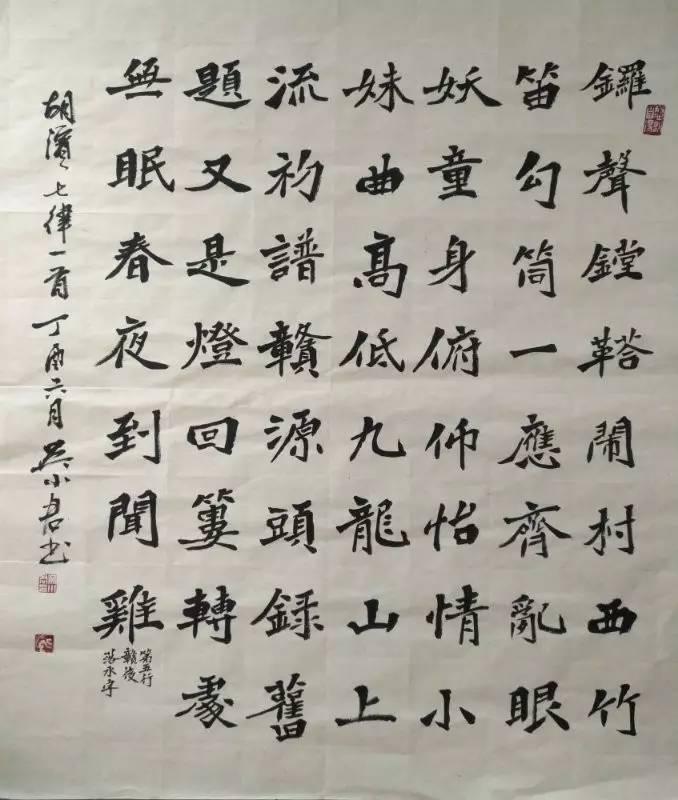 鑼聲鏜鞳鬧村西竹
笛勾筒一應齊亂眼
妖童身俯仰怡情小
妹曲高低九龍山上
流初譜贛源頭錄舊
題又是燈回簍轉處
無眠春夜到聞雞
第五行
贛後
落水字
胡濱七律一首丁酉六月吳小君书